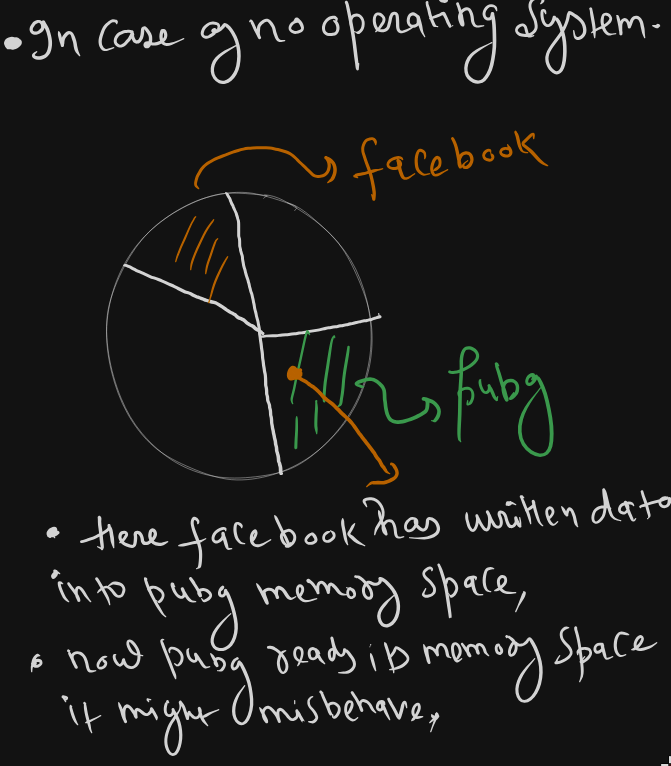 • In case of no operating system.
facebook
pubg
• Here facebook has written data
into pubg memory space,
• now pubg reads its memory space
it might misbehave,